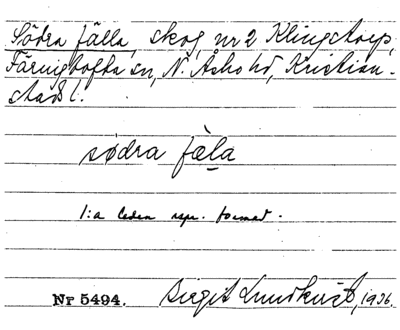 Södra fälla, skog, nr 2 Klingstorp,
Färingtofta sn, N. Åsbo hd, Kristian-
stads l.
södra fæla
1:a leden resp. formad.
Nr 5494. Birgit Lundkvist, 1936.